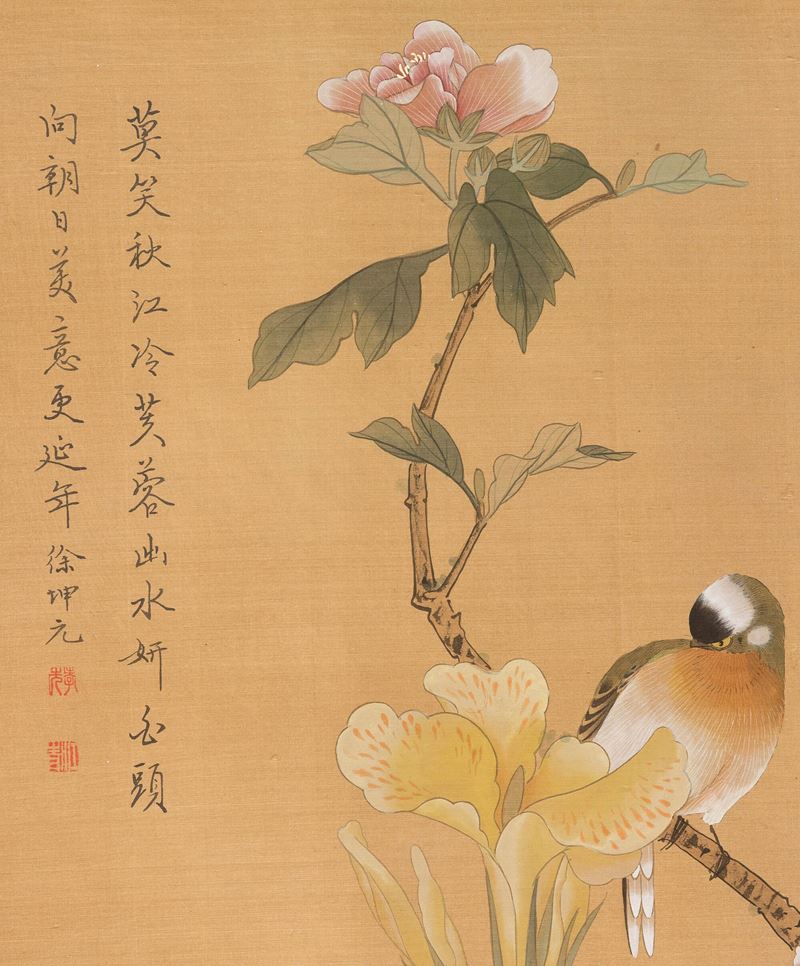 莫笑秋江冷芙蓉出水妍白頭
向朝日美意更延年徐坤元